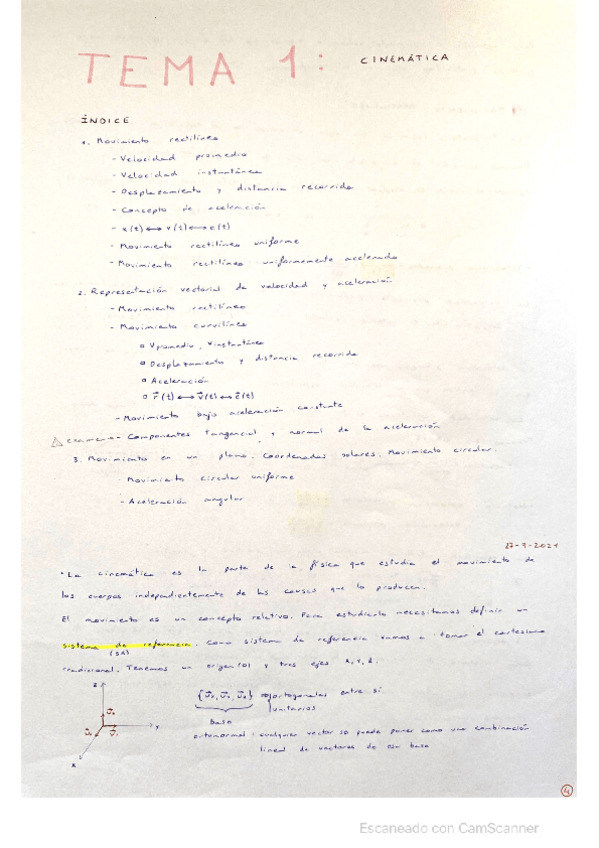 TEMA 1: CINEMÁTICA
ÍNDICE
1. Movimiento rectilíneo
- Velocidad promedio
- Velocidad instantánea
- Desplazamiento y distancia recorrida
- Concepto de aceleración
- x(t) ⟷ v(t) ⟷ a(t)
- Movimiento rectilíneo uniforme
- Movimiento rectilíneo uniformemente acelerado
2. Representación vectorial de velocidad y aceleración
- Movimiento rectilíneo
- Movimiento curvilíneo
Vpromedio, Vinstantánea
Desplazamiento y distancia recorrida
Aceleración
r⃗(t) ⟷ v⃗(t) ⟷ a⃗(t)
- Movimiento bajo aceleración constante
examen - Componentes tangencial y normal de la aceleración
3. Movimiento en un plano. Coordenadas polares. Movimiento circular.
- Movimiento circular uniforme
- Aceleración angular
27-9-2021
La cinemática es la parte de la física que estudia el movimiento de
los cuerpos independientemente de las causas que lo producen.
El movimiento es un concepto relativo. Para estudiarlo necesitamos definir un
sistema de referencia. Como sistema de referencia vamos a tomar el cartesiano
(SR)
tradicional. Tenemos un origen (O) y tres ejes x, y, z.
z
y
x
ortogonales entre sí
unitarios
base
ortonormal: cualquier vector se puede poner como una combinación
lineal de vectores de esa base
4
Escaneado con CamScanner